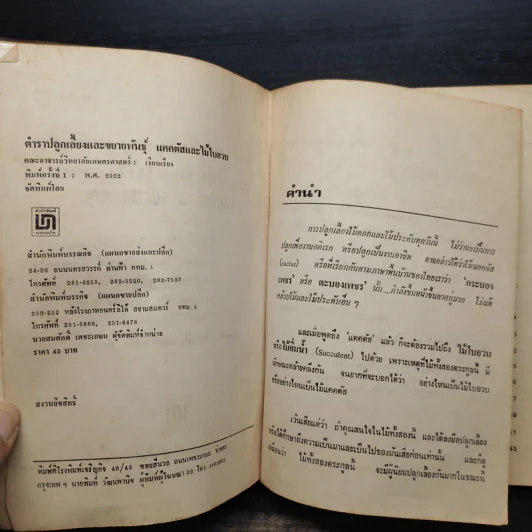 ตำราปลูกเลี้ยงและขยายพันธุ์ แคคตัสและไม้ใบอวบ
คณะอาจารย์วิทยาลัยเกษตรศาสตร์ : เรียบเรียง
พิมพ์ครั้งที่ 1 : พ.ศ. 2522
จัดพิมพ์โดย
สำนักพิมพ์บรรณกิจ (แผนกขายส่งและปลีก)
34-36 ถนนนครสวรรค์ ผ่านฟ้า กทม. 1
โทรศัพท์ 281-4213, 282-5520, 282-7537
สำนักพิมพ์บรรกิจ (แผนกขายปลีก)
250-252 หลังโรงภาพยนตร์ลิโด้ สยามสแควร์ กทม.
โทรศัพท์ 251-5866, 251-8473
นายสมศักดิ์ เตชะเกษม ผู้จัดพิมพ์จำหน่าย
ราคา 45 บาท
สงวนลิขสิทธิ์
พิมพ์ที่โรงพิมพ์เจริญกิจ 46/43 ซอย ถนนเพชรเกษม
กรุงเทพ ฯ นายพิมพ์ วัฒนพานิช ผู้พิมพ์ผู้โฆษณา 22 โทร.
คำนำ
การปลูกเลี้ยงไม้ดอกและไม้ประดับทุกวันนี้ ไม่ว่าจะเป็นการ
ปลูกเพื่องานอดิเรก หรือปลูกเป็นงานอาชีพ อาจกล่าวได้ว่าไม้แคคตัส
(cactus) หรือที่เรียกกันตามภาษาพื้นบ้านของไทยเราว่า "กระบอง
เพชร" หรือ ตะบองเพชร" นั้น...กำลังรุ่งเรืองขึ้นมาอยู่มาก ไม่แพ้
กล้วยไม้และไม้ประดับอื่น ๆ
และเมื่อพูดถึง "แคคตัส" แล้ว ก็จะต้องรวมไปถึง ไม้ใบอวบ
หรือไม้อิ่มน้ำ (Succulent) ไปด้วย เพราะเหตุที่ไม้ทั้งสองตระกูลนี้ มี
ลักษณะคล้ายคลึงกัน จนยากที่จะบอกได้ว่า อย่างไหนเป็นไม้ใบอวบ
หรืออย่างไหนเป็นไม้แคคตัส
เว้นเสียแต่ว่า ถ้าคุณสนใจในไม้ทั้งสองนี้ และได้ลงมือปลูกเลี้ยง
หรือได้ศึกษาถึงความเป็นมาและเป็นไปของมันเสียก่อนเท่านั้น และก็ดู
เหมือนว่า ไม้ทั้งสองตระกูลนี้ จะมีผู้นิยมปลูกเลี้ยงกันมากในขณะนี้